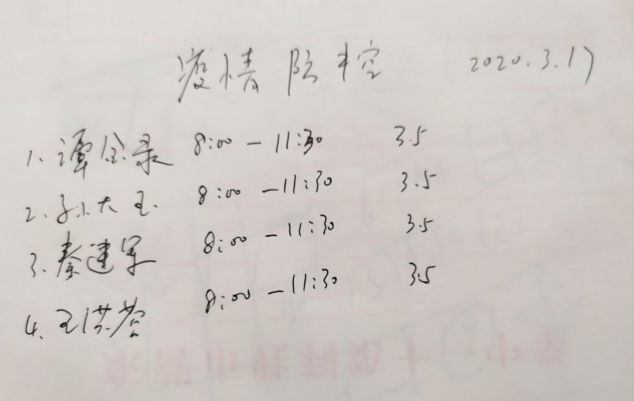 疫情防控 2020.3.17
1、谭全录 8:00-11:30 3.5
2、孙大玉 8:00-11:30 3.5
3、秦建军 8:00-11:30 3.5
4、王洪营 8:00-11:30 3.5